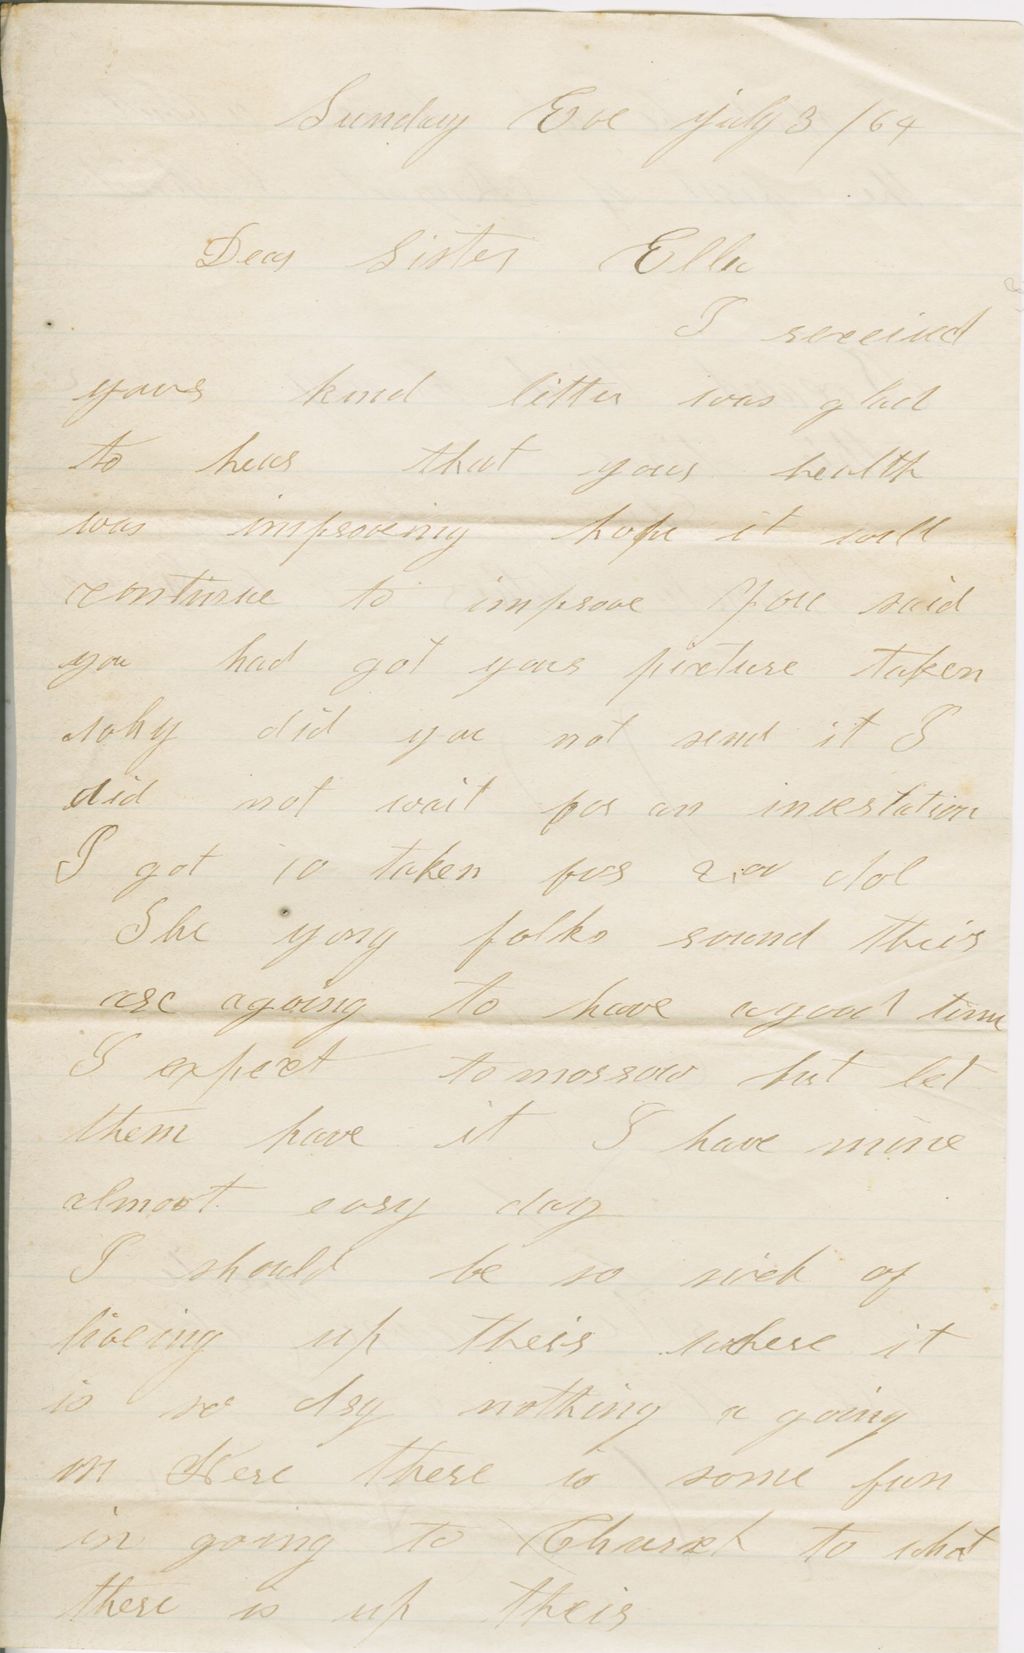 Sunday Eve July 3 /64
Dear Sister Ella
I received
your kind letter was glad
to hear that your health
was improveing hope it will
continue to improve You said
you had got your picture taken
why did you not send it I
did not wait for an invertation
I got 10 taken for 2.00 dol
The yong folks round their
are agoing to have agood time
I expect tomorrow but let
them have it I have mine
almost evry day
I should be so sick of
liveing up their where it
is so dry nothing a going
on Here there is some fun
in going to Church to what
there is up their